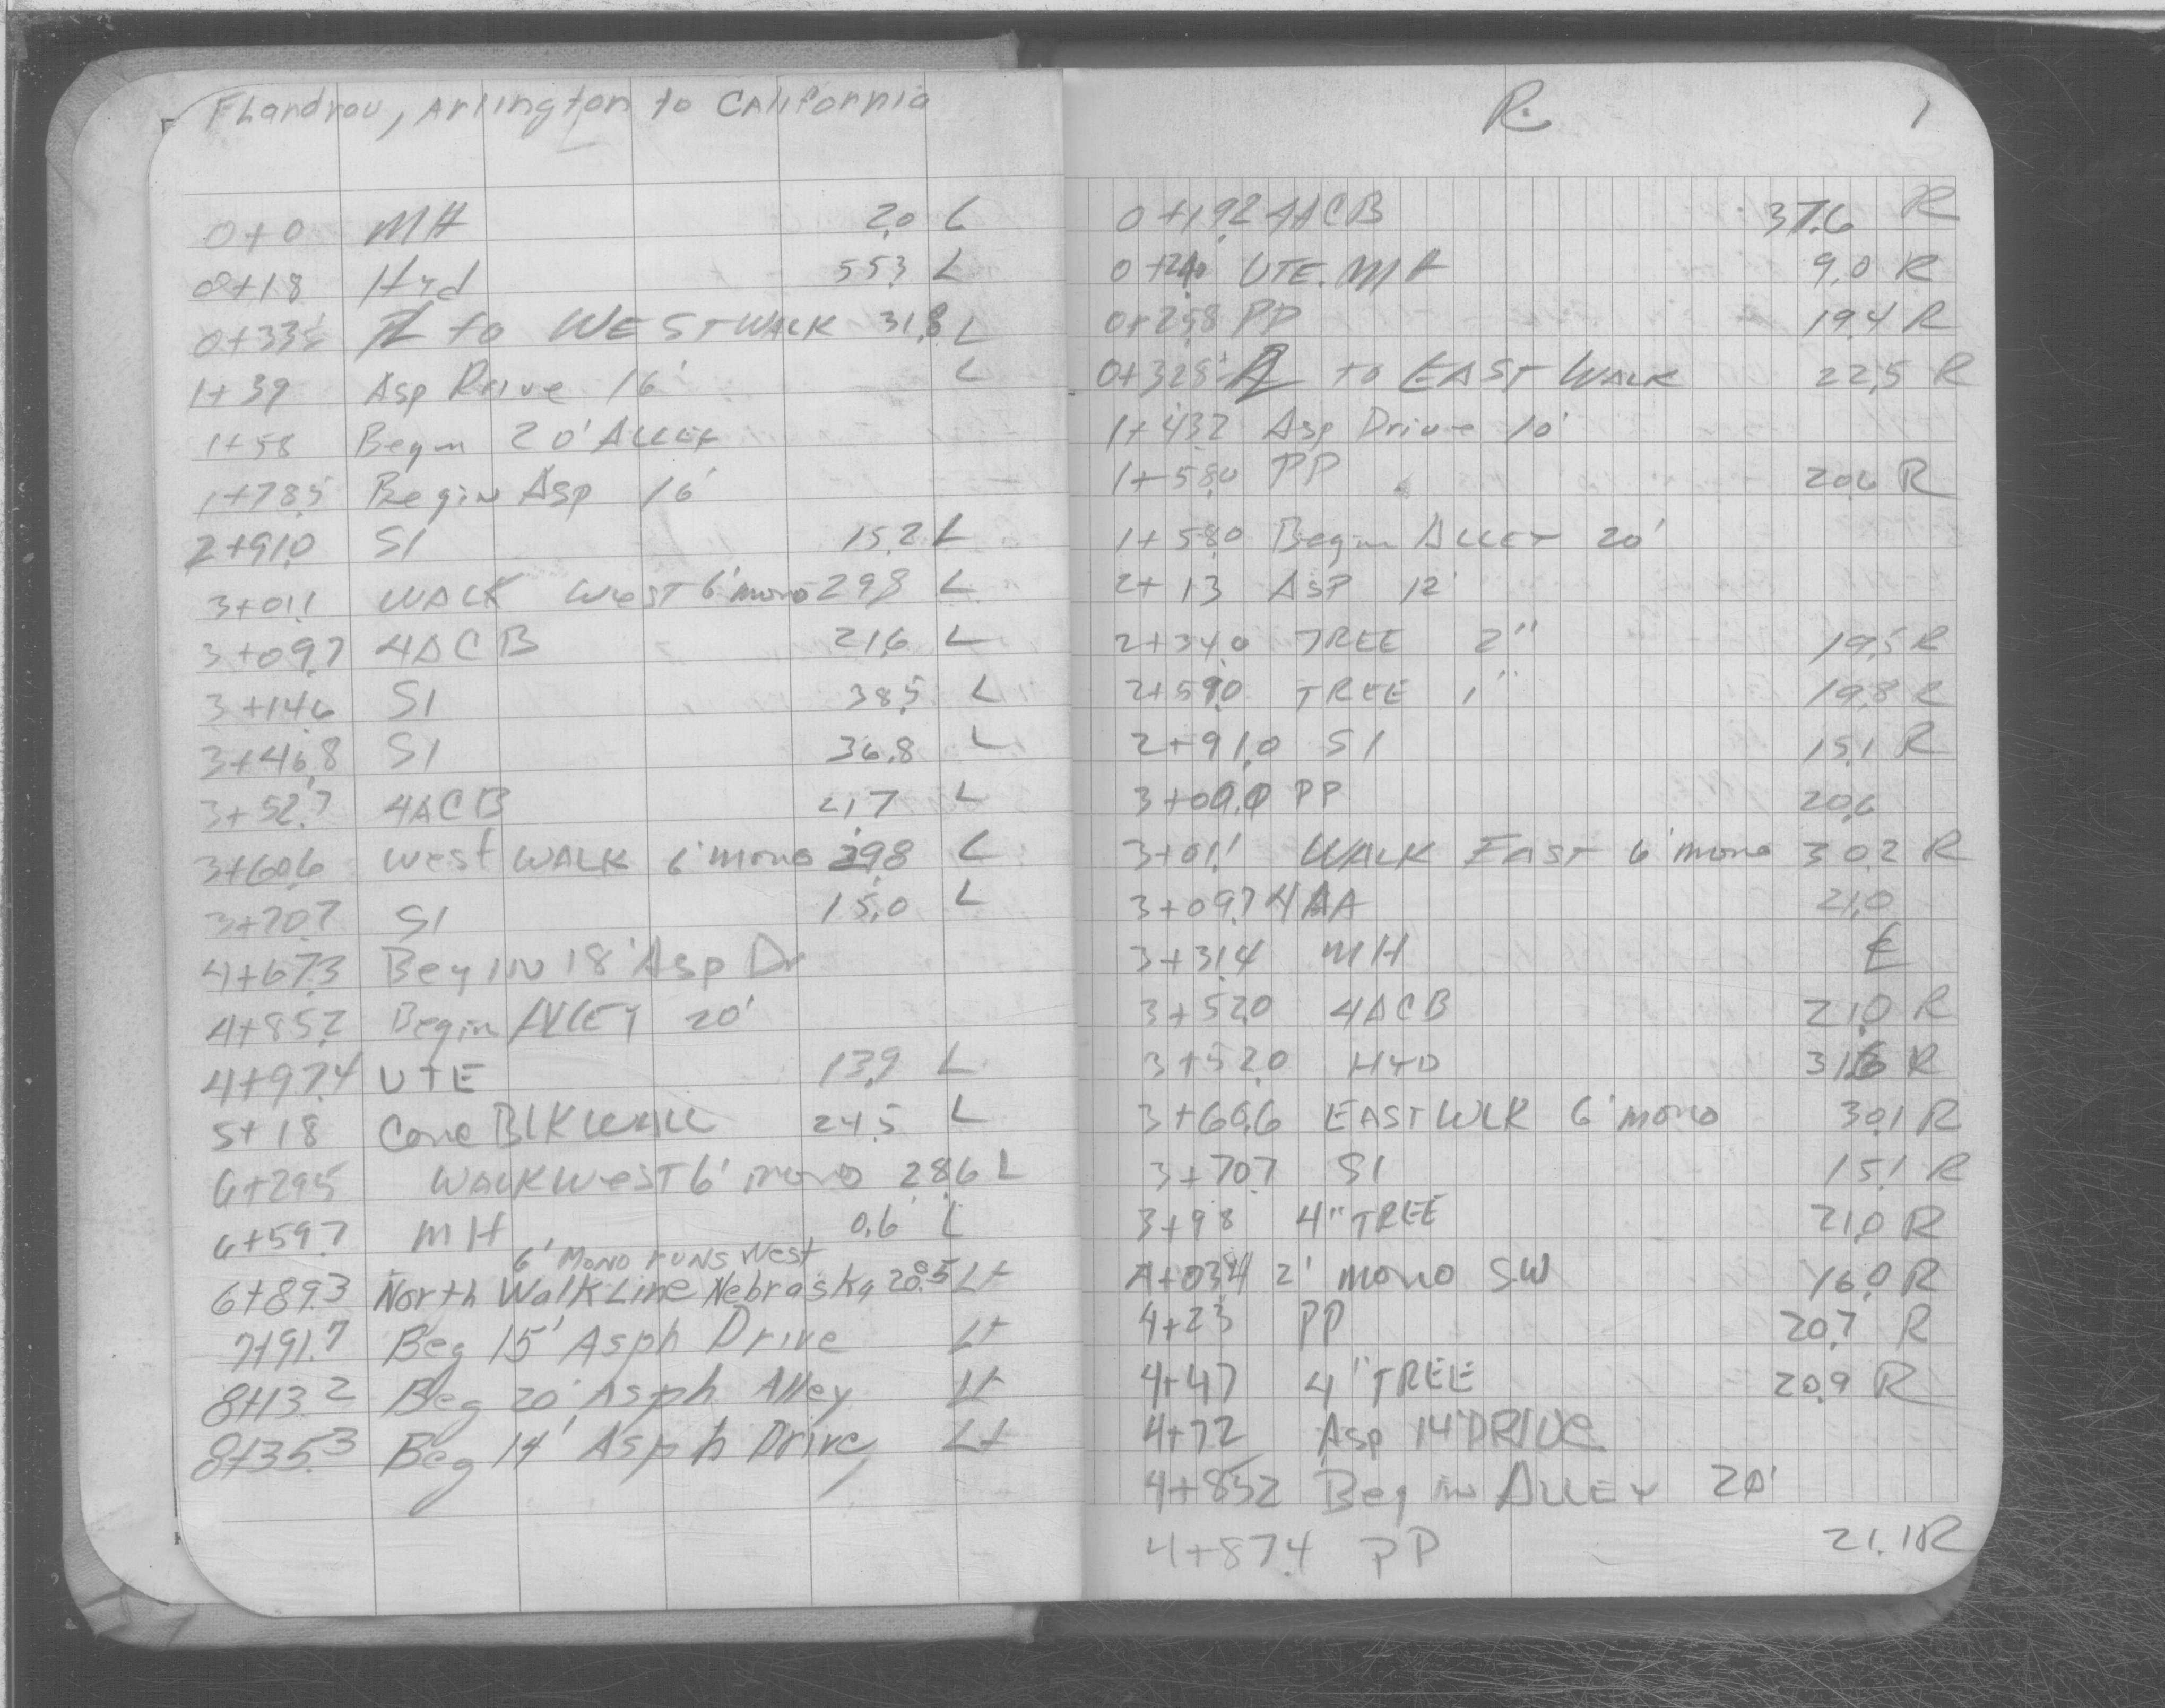 Flandrau, Arlington to California
0+0 MH 2.0 L
0+18 Hyd 55.3 L
0+33.5 PL to WEST WALK 31.8 L
1+39 Asp Drive 16' L
1+58 Begin 20' ALLEY
1+78.5 Begin Asp 16'
2+91.0 SI 15.2 L
3+01.1 WALK West 6' mono 29.8 L
3+09.7 4ACB 21.6 L
3+14.6 SI 38.5 L
3+46.8 SI 36.8 L
3+52.7 4ACB 21.7 L
3+60.6 West WALK 6' mono 29.8 L
3+70.7 SI 15.0 L
4+67.3 Begin 18' Asp Dr
4+85.2 Begin ALLEY 20'
4+97.4 UTE 13.9 L
5+18 Conc BLK WALL 24.5 L
6+29.5 WALK West 6' mono 28.6 L
6+59.7 MH 0.6 L
6' MONO RUNS West
6+89.3 North Walk Line Nebraska 28.5 Lt
7+91.7 Beg 15' Asph Drive Lt
8+13.2 Beg 20' Asph Alley Lt
8+35.3 Beg 14' Asph Drive Lt
R. 1
0+19.2 4ACB 37.6 R
UTE. MH 9.0 R
0+25.8 PP 19.4 R
0+32.8 PL to EAST WALK 22.5 R
1+43.2 Asp Drive 10'
1+58.0 PP 20.6 R
1+58.0 Begin ALLEY 20'
2+13 ASP 12'
2+34.0 TREE 2" 19.5 R
2+59.0 TREE 1" 19.8 R
2+91.0 SI 15.1 R
3+00.0 PP 20.6
3+01.1 WALK EAST 6' mono 30.2 R
3+09.7 4AA 21.0
3+31.4 MH ℄
3+52.0 4ACB 21.0 R
3+52.0 HYD 31.6 R
3+60.6 EAST WLK 6' mono 30.1 R
3+70.7 SI 15.1 R
3+98 4" TREE 21.0 R
4+03.4 2' mono SW 16.0 R
4+23 PP 20.7 R
4+47 4" TREE 20.9 R
4+72 Asp 14' DRIVE
4+85.2 Begin ALLEY 20'
4+87.4 PP 21.1 R